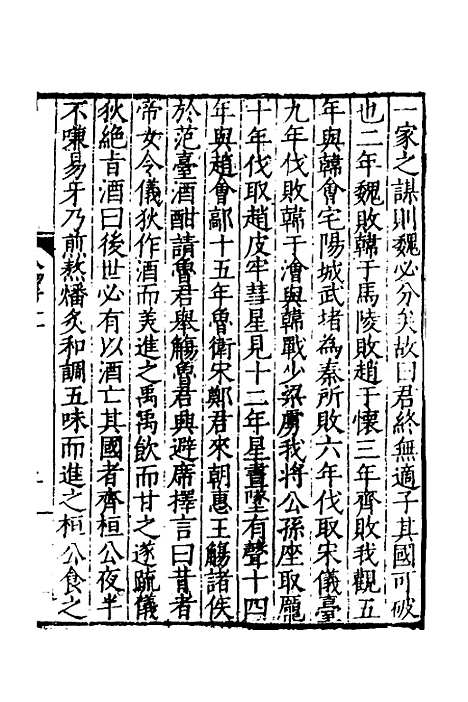 一家之謀則魏必分矣故曰君終無適子其國可破
也二年魏敗韓于馬陵敗趙于懷三年齊敗我觀五
年與韓會宅陽城武堵為秦所敗六年伐取宋儀臺
九年伐敗韓于澮與韓戰少梁虜我將公孫座取龐
十年伐取趙皮牢彗星見十二年星晝墜有聲十四
年與趙會鄗十五年魯衛宋鄭君來朝惠王觴諸侯
於范臺酒酣請魯君舉觴魯君興避席擇言曰昔者
帝女令儀狄作酒而美進之禹禹飲而甘之遂疏儀
狄絕旨酒曰後世必有以酒亡其國者齊桓公夜半
不嗛易牙乃煎熬燔炙和調五味而進之桓公食之